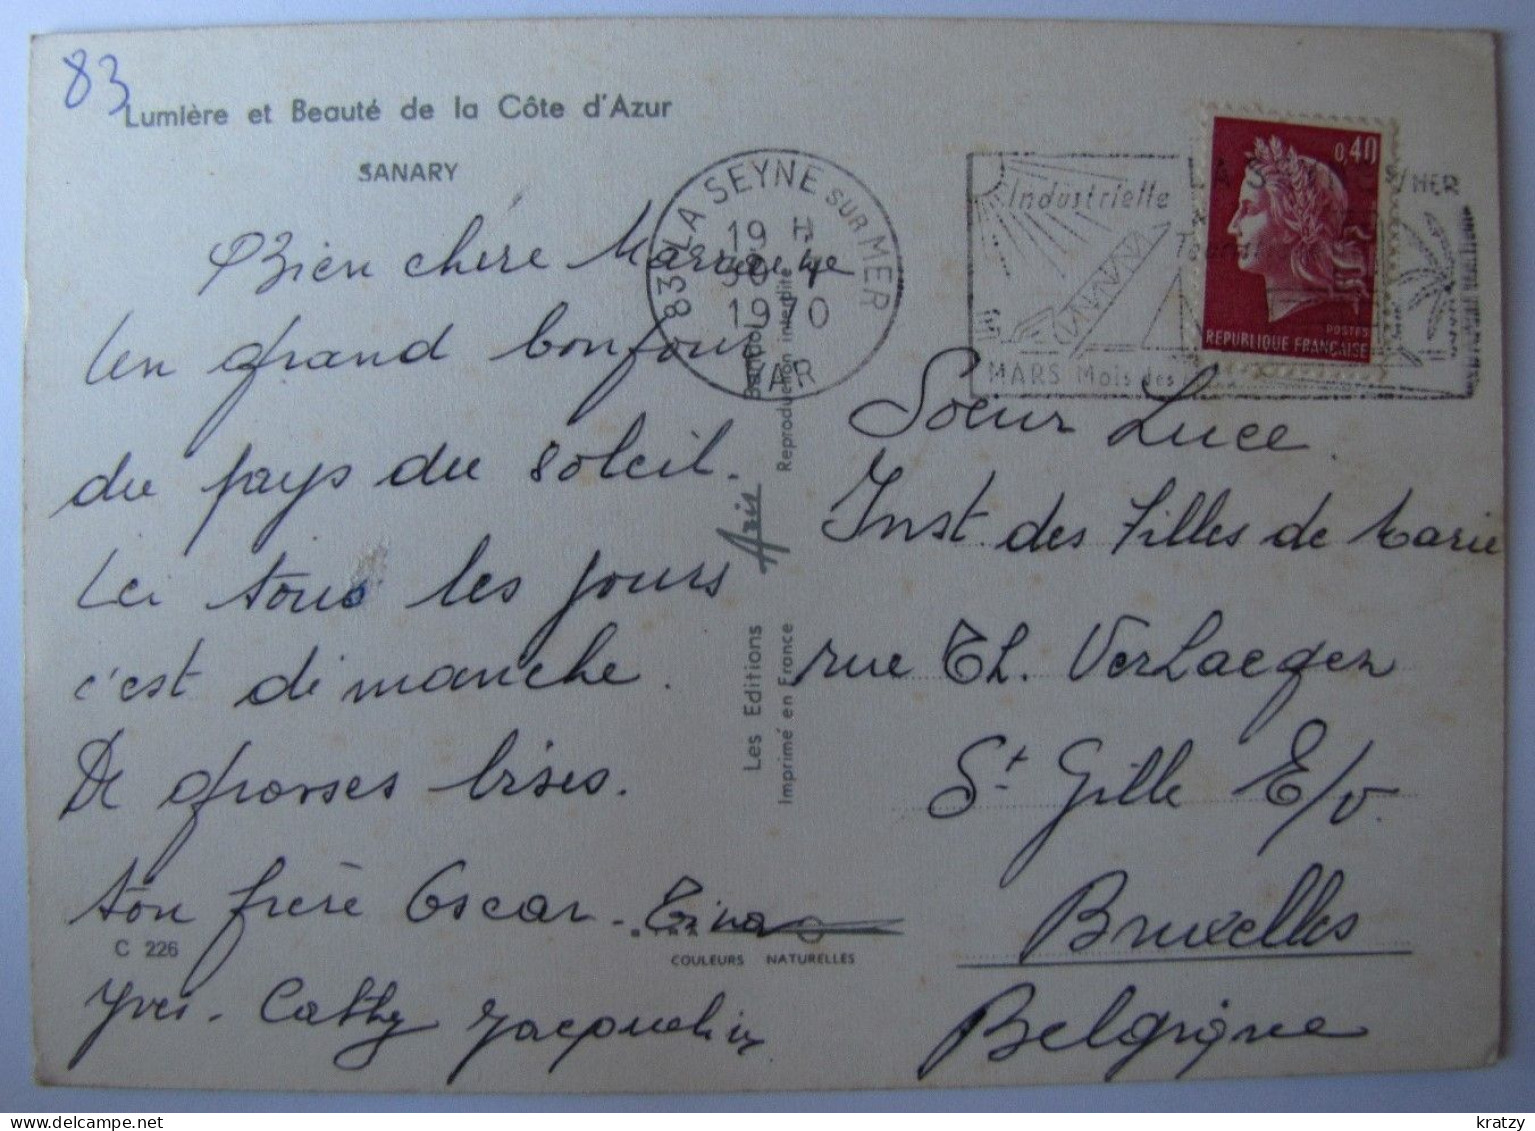 83
Lumière et Beauté de la Côte d'Azur
SANARY
Bien chère Marraine
Un grand bonjour
du pays du soleil.
Ici tous les jours
c'est dimanche.
De grosses bises.
ton frère Oscar - Erna
C 226
COULEURS NATURELLES
Yves - Cathy Jacquelin
83 LA SEYNE SUR MER
19 H
1970
VAR
Industrielle
S/MER
MARS Mois des
0,40
POSTES
REPUBLIQUE FRANÇAISE
Les Editions Aris Bandol
Imprimé en France Reproduction interdite
Soeur Luce.
Inst des Filles de Marie
rue Th. Verhaegen
St Gille E/v.
Bruxelles
Belgique
kratzy